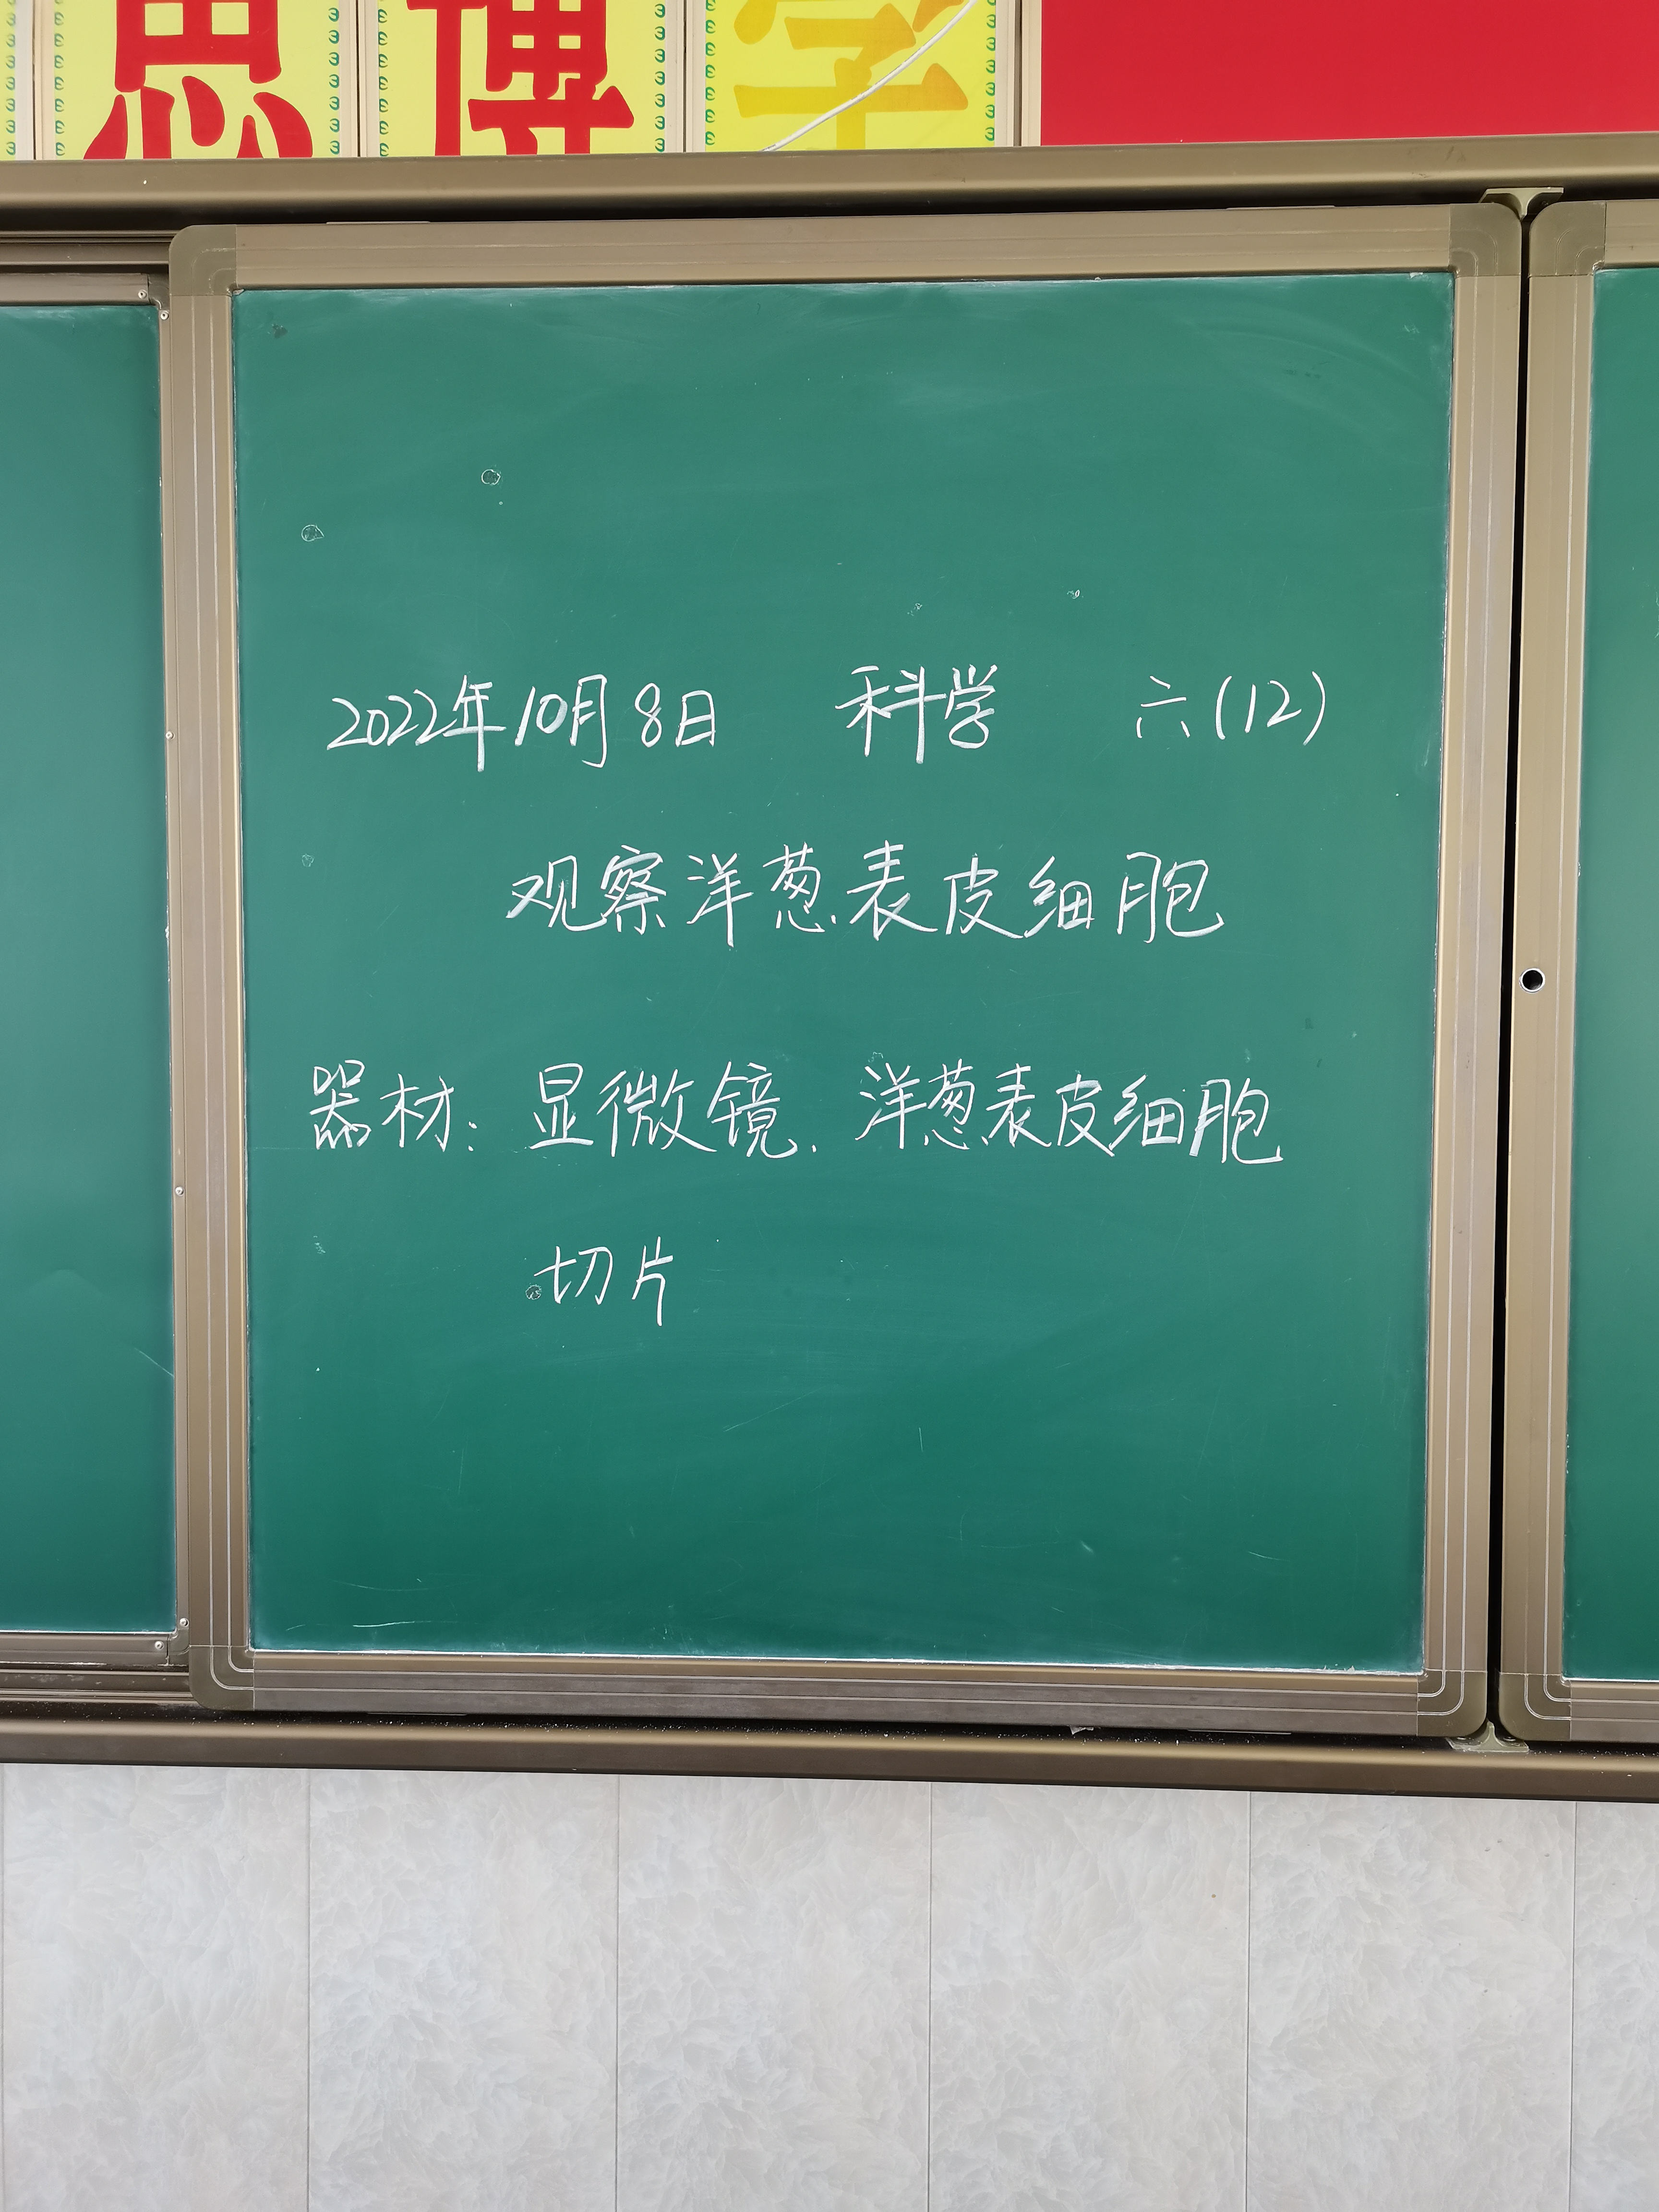 思 博 学
2022年10月8日 科学 六(12)
观察洋葱表皮细胞
器材: 显微镜、洋葱表皮细胞
切片